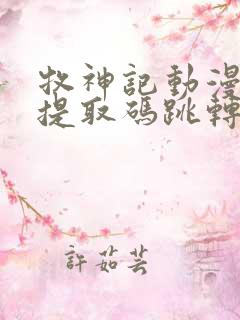 牧神記動漫
提取碼跳轉
許茹芸